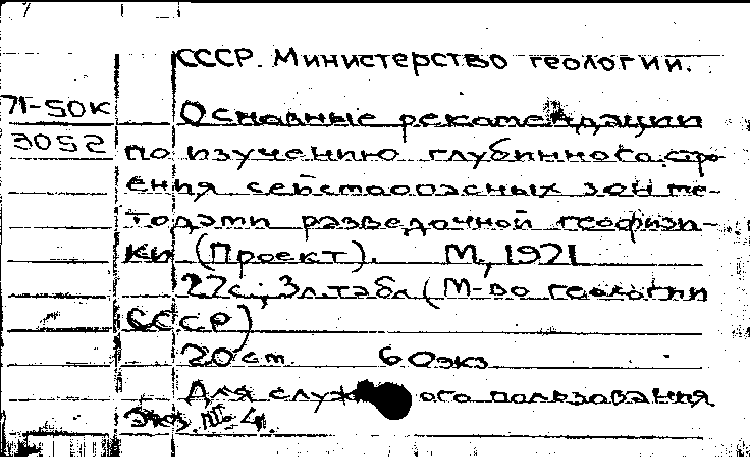 СССР. Министерство геологии.
71-50к
3052
Основные рекомендации
по изучению глубинного стро-
ения сейсмоопасных зон ме-
тодами разведочной геофизи-
ки (Проект). М., 1971
27с.; 3л.табл (М-во геологии
СССР)
20 см. 60экз
Для служебного пользования
Экз.